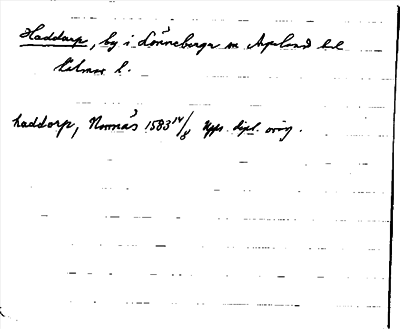 Haddarp, by i Lönneberga sn Aspeland hd
Kalmar l.
haddorp, Norrnäs 1583 14/8 Upps. dipl. orig.